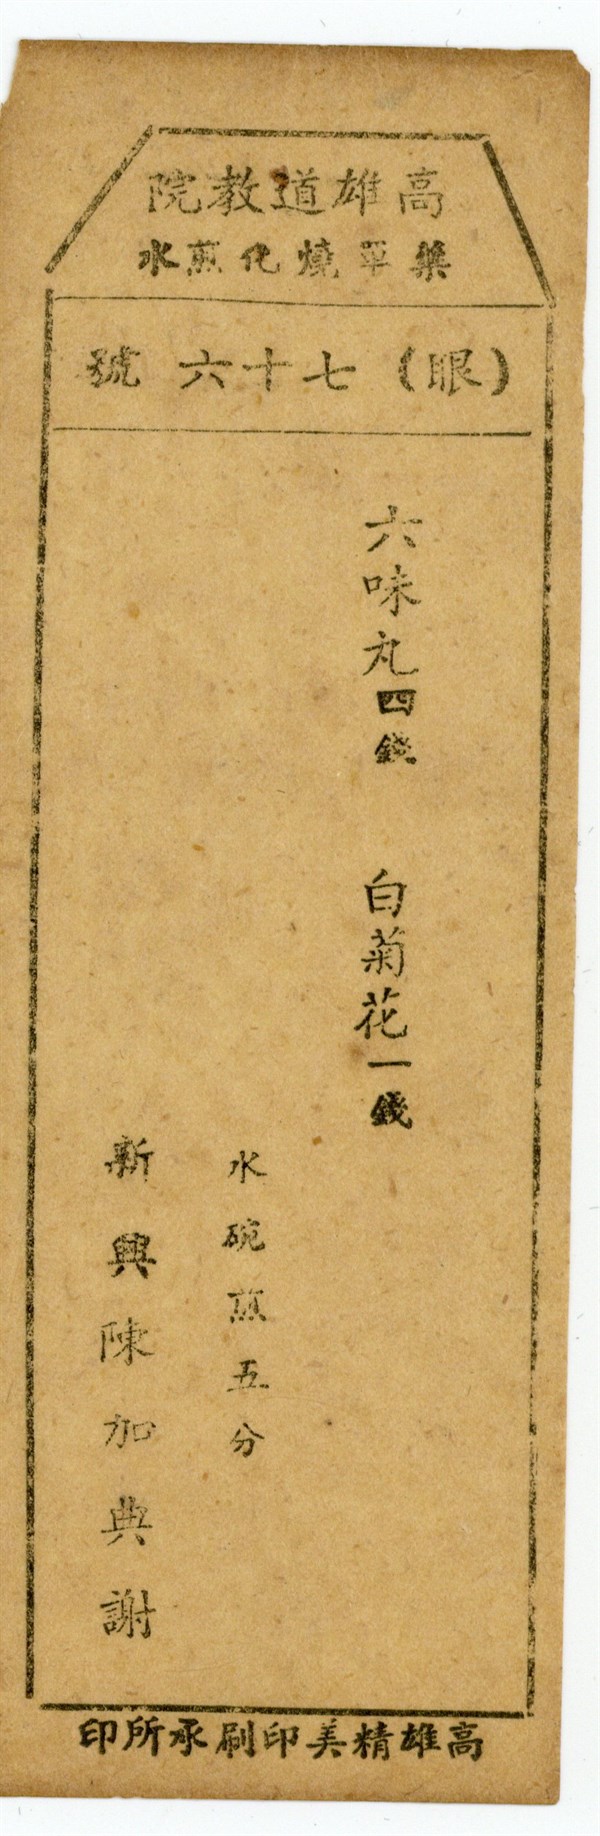 高雄道教院
藥單燒化煎水
（眼）七十六號
六味丸四錢　白菊花一錢
水碗煎五分
新興陳加典謝
高雄精美印刷承所印